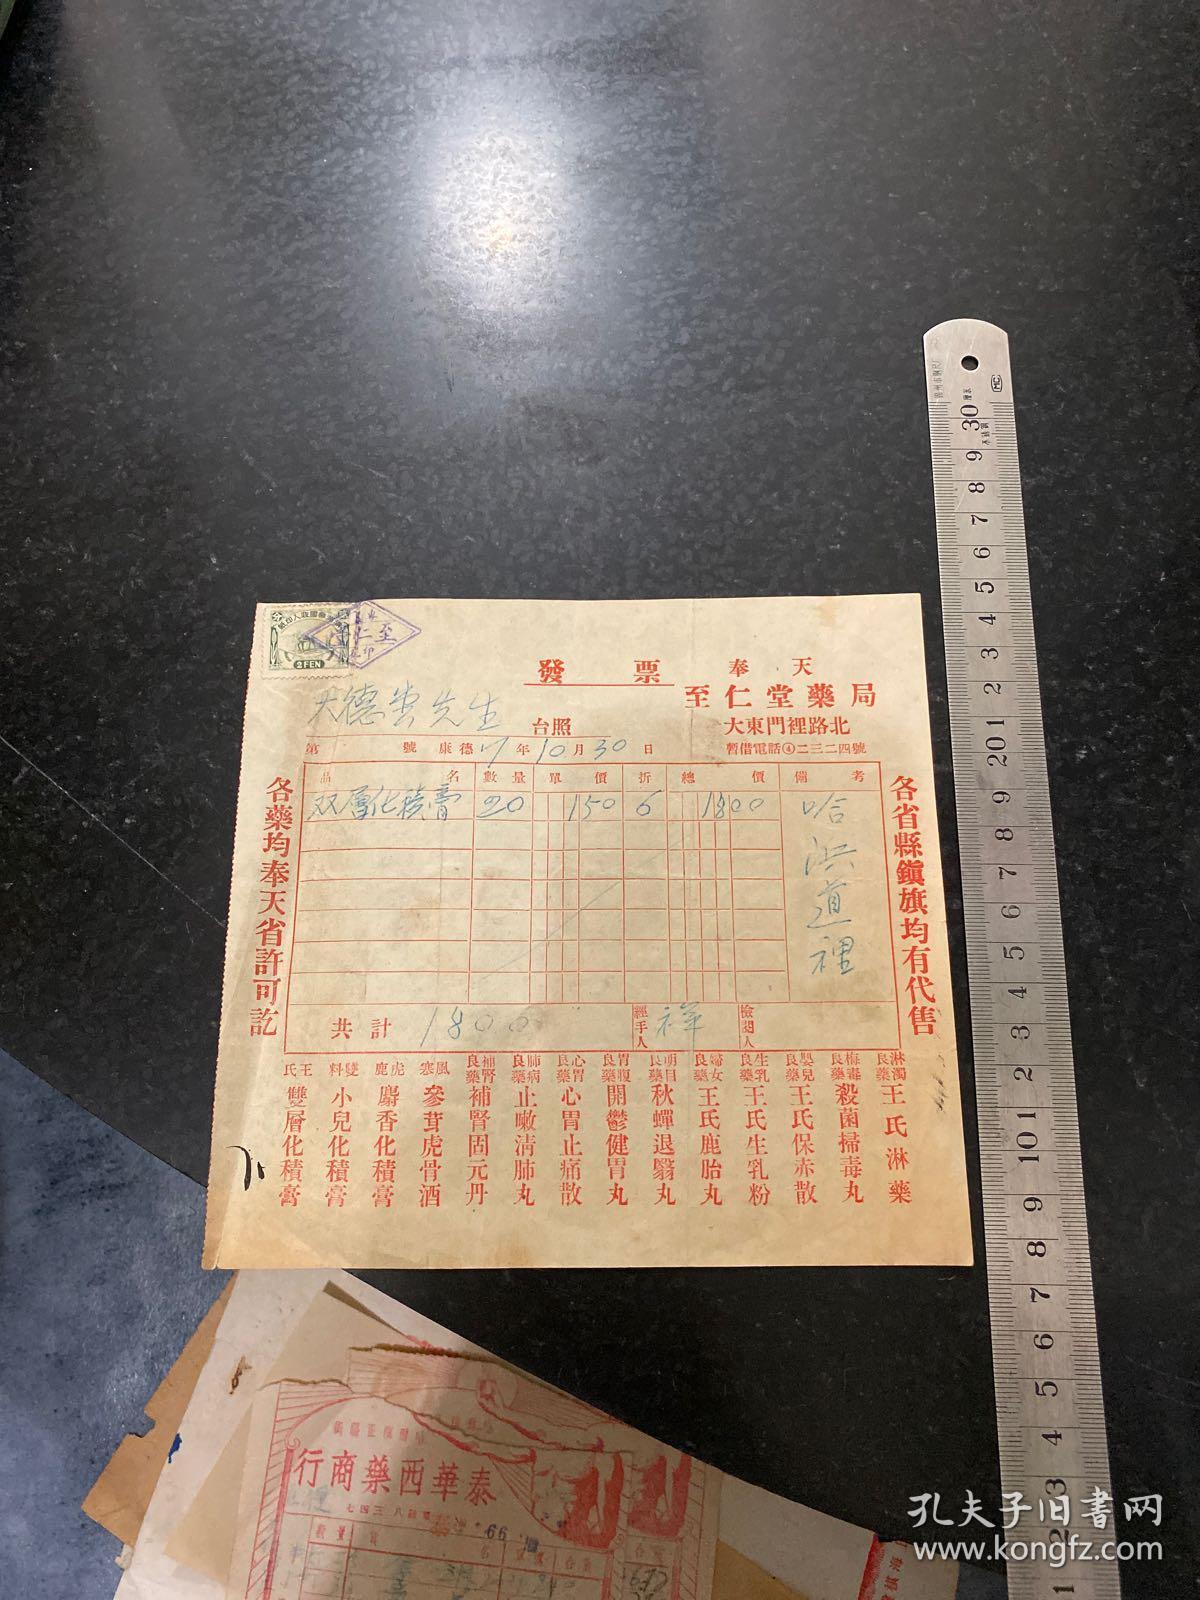 2 FEN
至仁
印
發票
奉天
至仁堂藥局
大德堂先生
台照
大東門裡路北
暫借電話④二三二四號
第 號 康德 7 年 10 月 30 日
品名 數量 單價 折 總價 備考
双層化積膏 20 150 6 1800 哈洪道裡
共計 1800
經手人 祥
檢閱人
各藥均奉天省許可訖
各省縣鎮旗均有代售
淋濁良藥 王氏淋藥
梅毒良藥 殺菌掃毒丸
嬰兒良藥 王氏保赤散
生乳良藥 王氏生乳粉
婦女良藥 王氏鹿胎丸
明目良藥 秋蟬退翳丸
胃腹良藥 開鬱健胃丸
心胃良藥 心胃止痛散
肺病良藥 止嗽清肺丸
補腎良藥 補腎固元丹
風寒 參茸虎骨酒
虎鹿 麝香化積膏
雙料 小兒化積膏
王氏 雙層化積膏
泰華西藥商行
孔夫子旧書网
www.kongfz.com
30 9 8 7 6 5 4 3 2 1 20 9 8 7 6 5 4 3 2 1 10 9 8 7 6 5 4 3 2 1